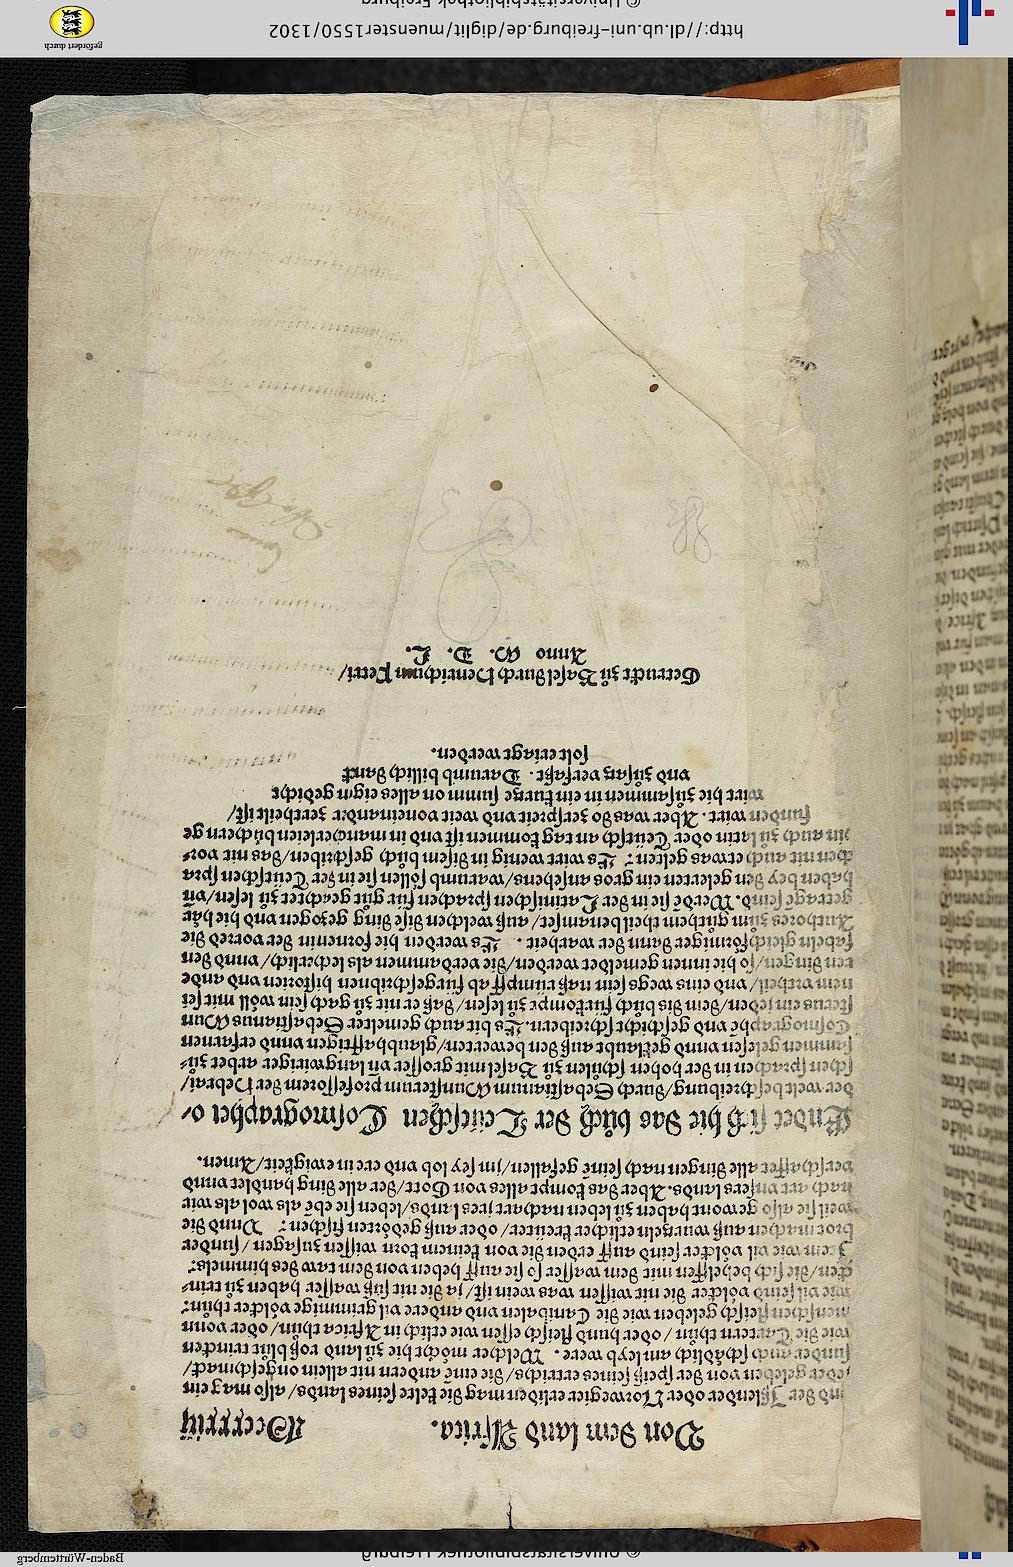 Von dem land Africa.
vnd der Jßlender oder Norwegier erliden mag die kelte seines lands/ also mag ein
jeder geleben von der speiß seines ertrichs/ die eine andern nit allein ongeschmack/
sunder auch schädlich am leyb were. Welcher möcht hie zů land roßblůt trincken
wie die Tartern thůn / oder hund fleisch essen wie etlich in Africa thůn/ oder vonn
menschen fleisch geleben wie die Canibalen vnd andere vil grimmige völcker thůn:
wie vil seind völcker die nit wissen was wein ist/ ja die nit süß wasser haben zů trin-
cken/ die sich behelffen mit dem wasser so sie auff heben von dem taw des himmels:
Item wie vil völcker seind auff erden die von keinem korn wissen zusagen / sunder
brot machen auß wurtzeln etlicher kreüter/ oder auß gedörten fischen: Vnnd die
weil sie also gewont haben zů leben nach art jres lands/ leben sie ebē als wol als wir
nach art vnsers lands. Aber das kompt alles von Gott/ der alle ding handlet vnnd
verschaffet alle dingen nach seinē gefallen/ jm sey lob vnd ere in ewigkeit/ Amen.
Endet sich hie das bůch der Teütschen Cosmographei o-
der welt beschreibung/ durch Sebastianum Munsterum professorem der Hebrai/
schen sprachen in der hohen schůlen zů Basel mit grosser vn langwiriger arbet zů-
sammen gelesen vnnd geklaubt auß den bewerten/ glaubhafftigen vnnd erfarnen
Cosmographē vnd geschicht schreibern. Es bit auch gemelter Sebastianus Mun
sterus ein jeden/ dem dis bůch fürkompt zů lesen/ daß er nit zů gäch sein wöll mit sei
nem vrtheil/ vnd eins wegs sein naß rümpff ab fürgeschribnen historien vnd ande
ren dingen/ so hie innen gemeldet werden/ die verdammen als lecherlich/ vnnd den
fabeln gleichförmiger dann der warheit. Es werden hie fornenin der vorred die
Authores zům gůthem theil benamset/ auß welchen dise ding gezogen vnd hie här
getragē seind. Werdē sie in der Latinischen sprachen für gůt geachtet zů lesen/ vn
haben bey den gelerten ein gros ansehens/ warumb söllen sie in der Teütschen spra
chen nit auch etwas gelten: Es wirt wenig in disem bůch geschriben/ das nit vor-
hin auch zů latin oder Teütsch an tag kommen ist vnd in mancherleien büchern ge
funden wirt. Aber was do zerspreit vnd weit voneinander zertheilt ist/
wirt hie zůsammen in ein kurtze summ on alles eigen gedicht
vnd zůsatz verfaßt. Darumb billich danck
solt ertagt werden.
Getruckt zů Basel durch Henrichum Petri/
Anno M. D. L.
http://dl.ub.uni-freiburg.de/diglit/muenster1550/1302
© Universitätsbibliothek Freiburg
gefördert durch
Baden-Württemberg